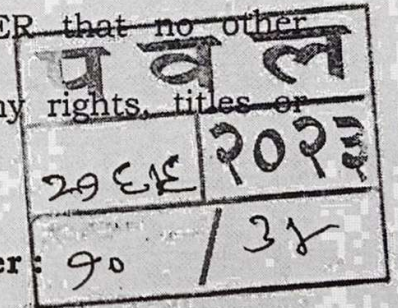 ER that no other
प व ल
ny rights, titles or
२०२३
er : १० / ३४